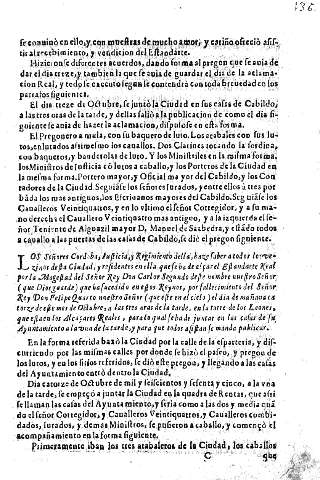 136.
se conuino en ello, y con muestras de mucho amor, y cariño ofreció assis-
tir al recebimiento, y vendicion del Estandarte.
Hizieronse diferentes acuerdos, dando forma al pregon que se auia de
dar el dia treze, y tambien la que se auia de guardar el dia de la aclama-
cion Real, y todo se executó segun se contendrá con toda breuedad en los
parrafos siguientes.
El dia treze de Octubre, se juntó la Ciudad en sus casas de Cabildo,
a las tres oras de la tarde, y dellas salió a la publicacion de como el dia si-
guiente se auia de hazer la aclamacion, dispusose en esta forma.
Pregonero a mula, con su baquero de luto. Los atabales con sus lu-
tos, enlutados assimesmo los cauallos. Dos Clarines tocando la sordina,
con baqueros, y banderolas de luto. Y los Ministriles en la misma forma,
los Ministros de Iusticia cõ lutos a cauallo, y los Porteros de la Ciudad en
la mesma forma. Portero mayor, y Oficial mayor del Cabildo, y los Con-
tadores de la Ciudad. Seguiãse los señores Iurados, y entre ellos à tres por
bãda los mas antiguos, los Escriuanos mayores del Cabildo. Seguiãse los
Caualleros Veintiquatros, y en lo vltimo el señor Corregidor, y a su ma-
no derecha el Cauallero Veintiquatro mas antiguo, y a la izquierda el se-
ñor Teniente de Alguazil mayor D. Manuel de Saabedra, y estãdo todos
a cauallo a las puertas de las casas de Cabildo, se dió el pregon siguiente.
LOS Señores Cordoba, Iusticia, y Regimiento della, haze saber a todos los ve-
zinos desta Ciudad, y residentes en ella que se ha de alçar el Estandarte Real
por la Magestad del Señor Rey Don Carlos Segundo deste nombre nuestro Señor
(que Dios guarde) que ha sucedido en estos Reynos, por fallecimiento del Señor
Rey Don Felipe Quarto nuestro Señor (que esté en el cielo) el dia de mañana ca-
torze deste mes de Octubre, a las tres oras de la tarde, en la torre de los Leones,
que està en los Alcaçares Reales, para lo qual se ha de juntar en las casas de su
Ayuntamiento a la vna de la tarde, y para que todos assistan se manda publicar.
En la forma referida baxó la Ciudad por la calle de la esparteria, y dis-
curriendo por las mismas calles por donde se hizo el paseo, y pregon de
los lutos, y en los sitios referidos, se dió este pregon, y llegando a las casas
del Ayuntamiento entró dentro la Ciudad.
Dia catorze de Octubre de mil y seiscientos y sesenta y cinco, a la vna
de la tarde, se empeçó a juntar la Ciudad en la quadra de Rentas, que assi
se llaman las casas del Ayuntamiento, y seria como a las dos y media quã-
do el señor Corregidor, y Caualleros Veintiquatros, y Caualleros combi-
dados, Iurados, y demas Ministros, se pusieron a cauallo, y començó el
acompañamiento en la forma siguiente.
Primeramente iban los tres atabaleros de la Ciudad, los cauallos
C que